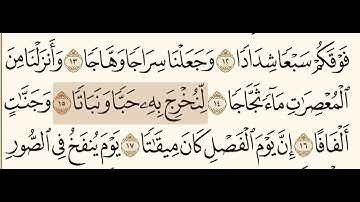 فَوْقَكُمْ سَبْعًا شِدَادًا ١٢ وَجَعَلْنَا سِرَاجًا وَهَّاجًا ١٣ وَأَنزَلْنَا مِنَ
ٱلْمُعْصِرَٰتِ مَآءً ثَجَّاجًا ١٤ لِّنُخْرِجَ بِهِۦ حَبًّا وَنَبَاتًا ١٥ وَجَنَّٰتٍ
أَلْفَافًا ١٦ إِنَّ يَوْمَ ٱلْفَصْلِ كَانَ مِيقَٰتًا ١٧ يَوْمَ يُنفَخُ فِى ٱلصُّورِ